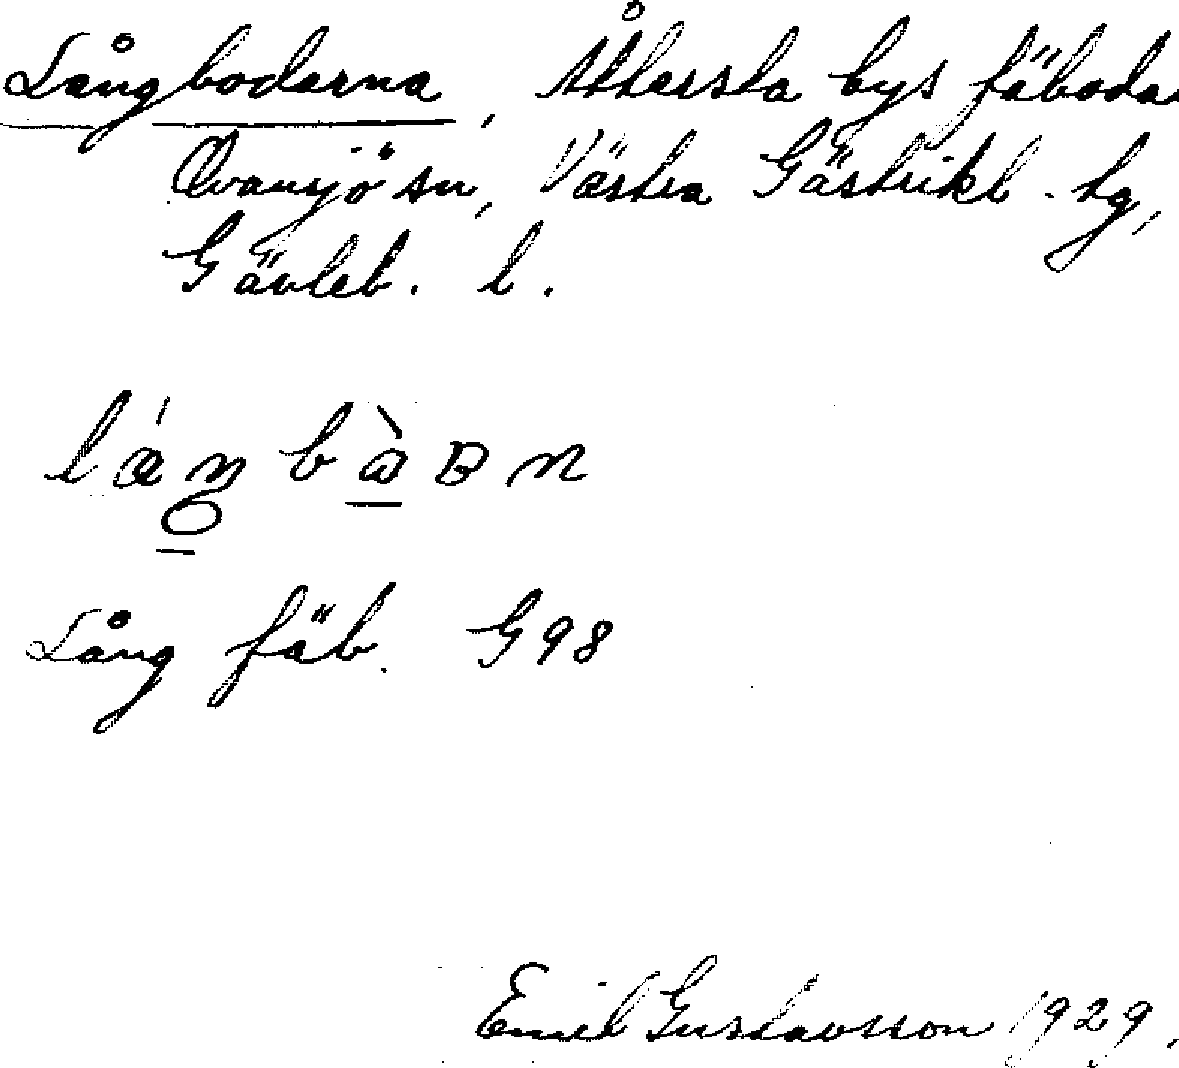 Långboderna, Åttersta bys fäboda
Ovansjö sn, Västra Gästrikl. tg,
Gävleb. l.
Lång fäb. G98
Emil Gustavsson 1929.